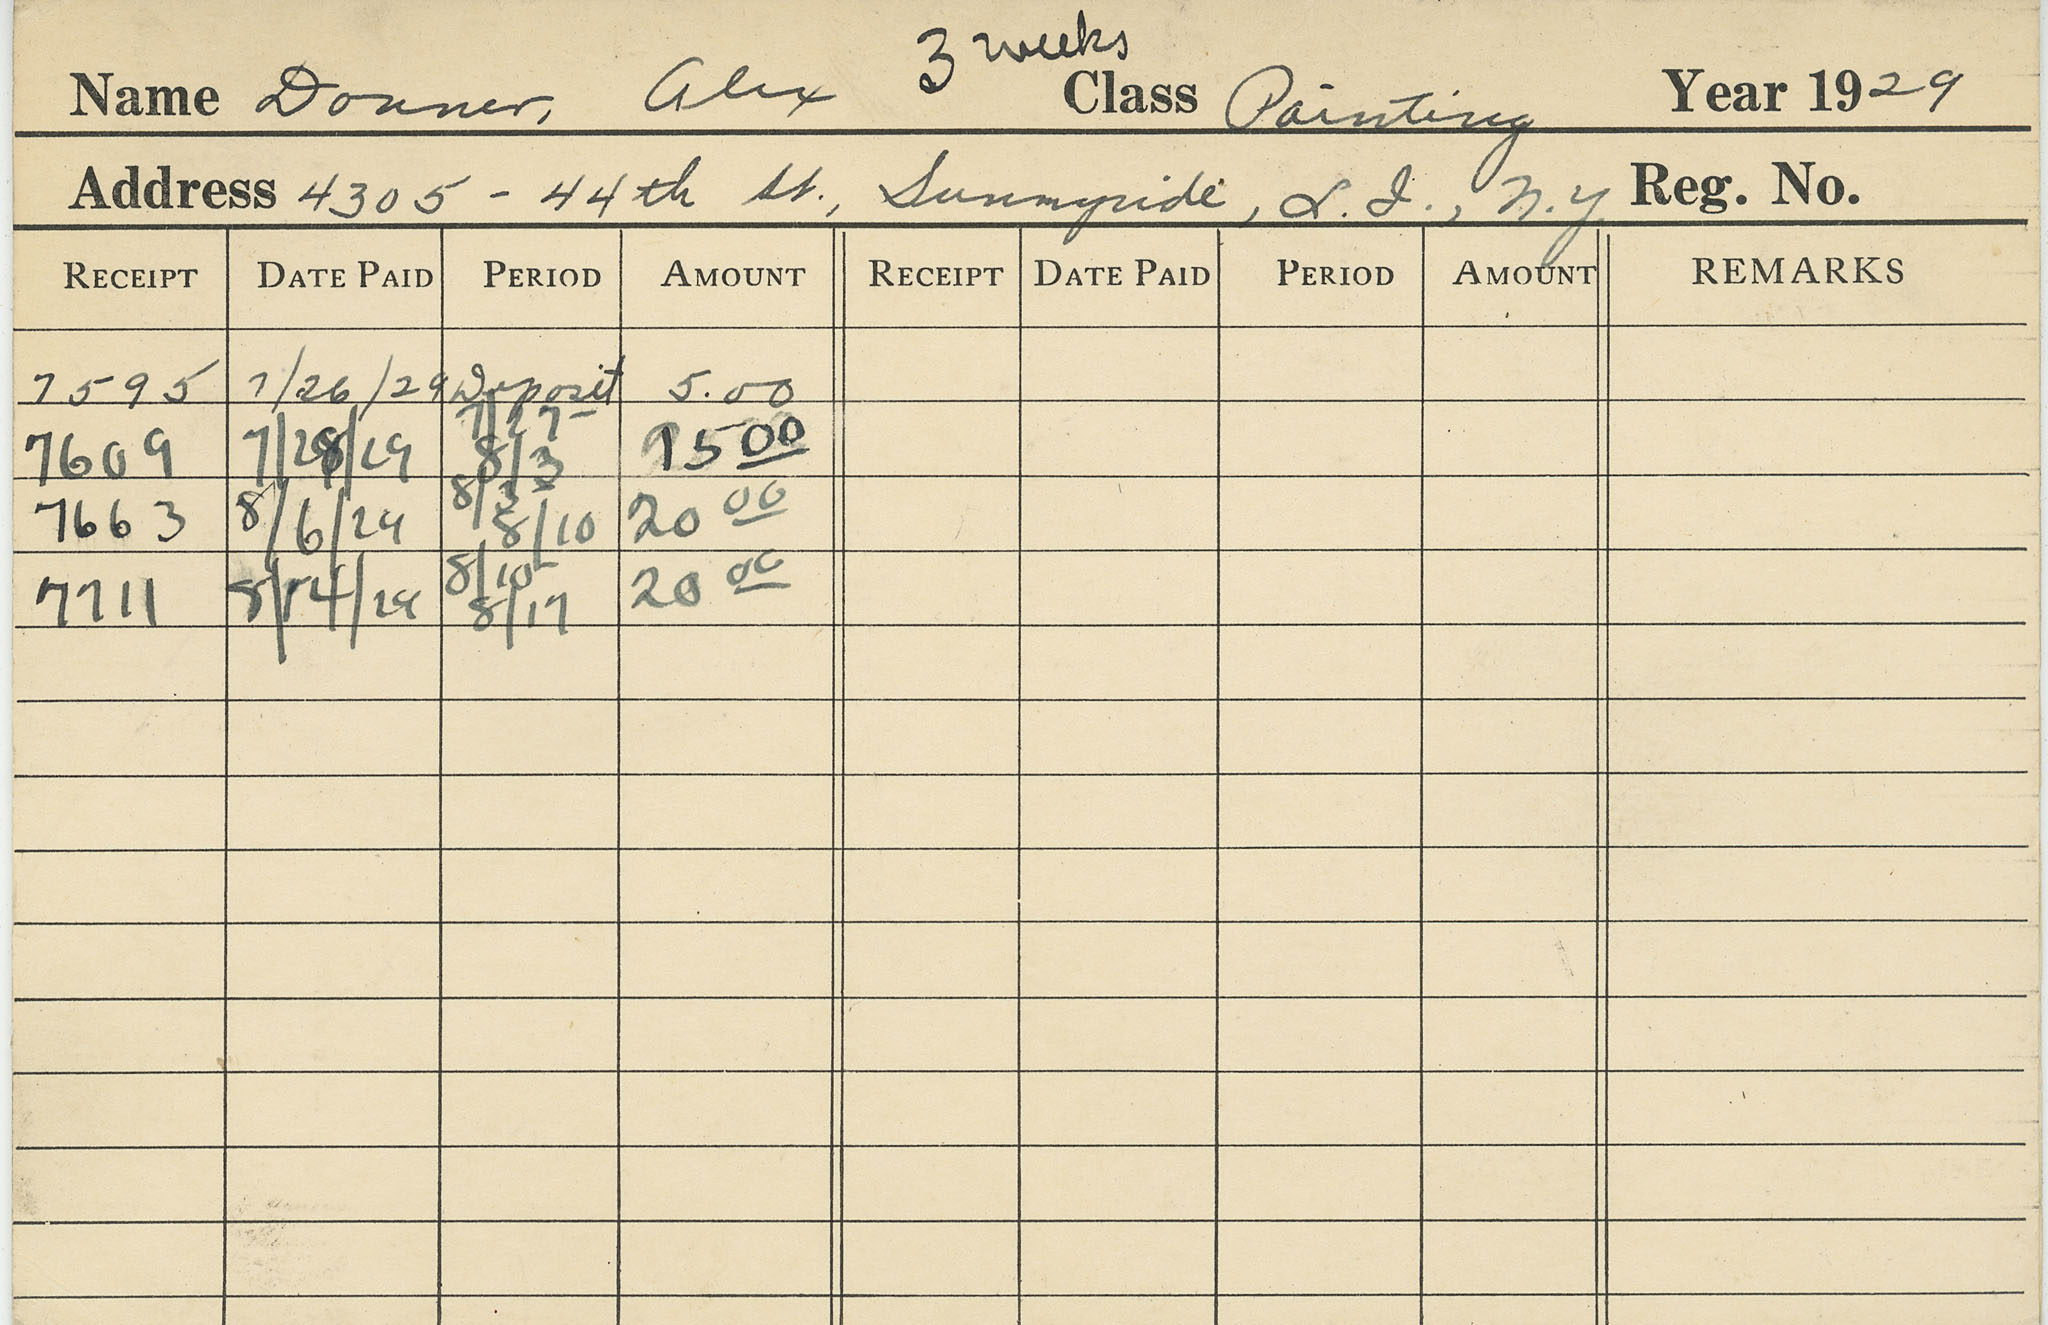 3 weeks
Name Donner, Alex Class Painting Year 1929
Address 4305 - 44th St., Sunnyside, L.I., N.Y Reg. No.
RECEIPT DATE PAID PERIOD AMOUNT RECEIPT DATE PAID PERIOD AMOUNT REMARKS
7595 7/26/29 Deposit 5.00
7/27-
7609 7/28/29 8/3 15 00
8/3-
7663 8/6/29 8/10 20 00
8/10-
7711 8/14/29 8/17 20 00